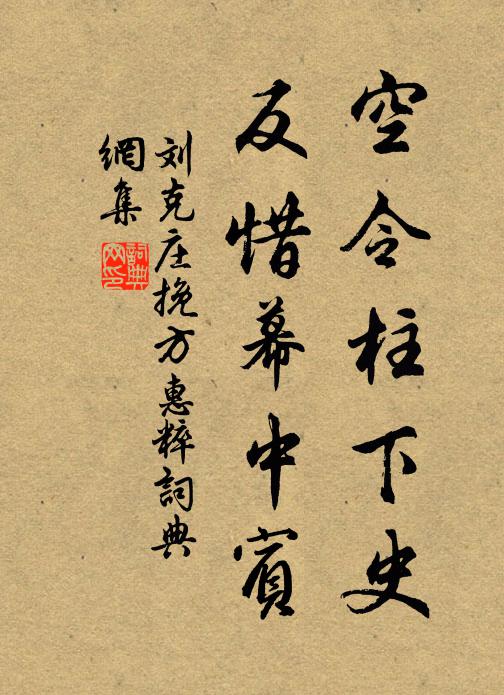 空令柱下史
反惜幕中賓
刘克庄挽方惠粹詞典
網集
詞典
网印